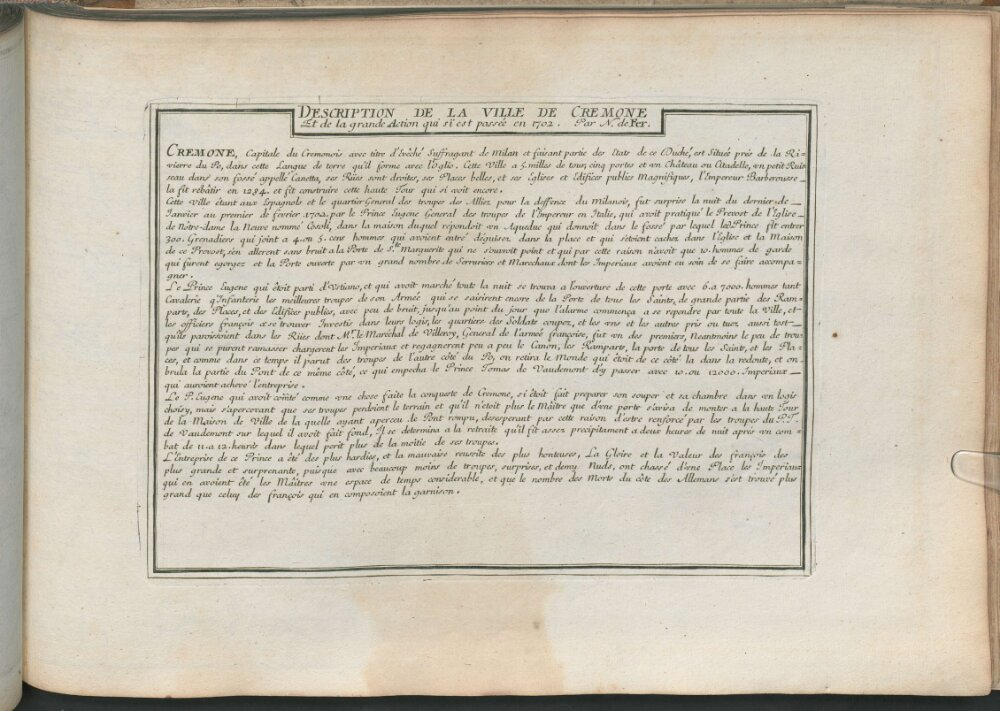 DESCRIPTION DE LA VILLE DE CREMONE
Et de la grande Action qui s'i est passée en 1702. Par N. de Fer.
CREMONE, Capitale du Cremonois avec titre d'Evêché Suffragant de Milan et faisant partie des Etats de ce Duché, est Située prés de la Ri-
viere du Po, dans cette Langue de terre qu'il forme avec l'Oglio. Cette Ville a 5. milles de tour, cinq portes et vn Château ou Citadelle, vn petit Ruis
seau dans son fossé appellé Canetta, ses Rües sont droites, ses Places belles, et ses Eglises et Edifices publics Magnifiques, l'Empereur Barberousse
la fit rebâtir en 1284. et fit construire cette haute Tour qui si voit encore.
Cette ville étant aux Espagnols et le quartier General des troupes des Alliez pour la deffence du Milanois, fut surprise la nuit du dernier de
Janvier au premier de fevrier 1702. par le Prince Eugene General des troupes de l'Empereur en Italie, qui avoit pratiqué le Prevost de l'Eglise
de Nôtre-dame la Neuve nommé Cosoli, dans la maison duquel repondoit vn Aqueduc qui donnoit dans le fossé par lequel le Prince fit entrer
300. Grenadiers qui joint a 4. ou 5. cens hommes qui avoient entré deguisez dans la place et qui s'étoient cachez dans l'Eglise et la Maison
de ce Prevost, s'en allerent sans bruit a la Porte de Ste. Marguerite qui ne s'ouvroit point et qui par cette raison n'avoit que 10. hommes de garde
qui fûrent egorgez et la Porte ouverte par vn grand nombre de Serruriers et Marechaux dont les Imperiaux avoient eu soin de se faire accompa-
gner.
Le Prince Eugene qui étoit parti d'Ustiano, et qui avoit marché toute la nuit se trouva a l'ouverture de cette porte avec 6. a 7000. hommes tant
Cavalerie qu'Infanterie les meilleures troupes de son Armée qui se saisirent encore de la Porte de tous les Saints, de grande partie des Ram-
parts, des Places, et des Edifices publics, avec peu de bruit, jusqu'au point du jour que l'alarme commença a se rependre par toute la Ville, et
les officiers françois a se trouver Investis dans leurs logis, les quartiers des Soldats coupez, et les vns et les autres pris ou tuez aussi tost
qu'ils paroissoient dans les Rües dont Mr. le Maréchal de Villeroy, General de l'armée françoise, fut vn des premiers, Neantmoins le peu de trou-
pes qui se purent ramasser chargerent les Imperiaux et regagnerent peu a peu le Canon, les Ramparts, la porte de tous les Saints, et les Pla-
ces, et comme dans ce temps il parut des troupes de l'autre côté du Po, on retira le Monde qui étoit de ce côté la dans la redoute, et on
brula la partie du Pont de ce même côté, ce qui empecha le Prince Tomas de Vaudemont d'y passer avec 10. ou 12000. Imperiaux
qui auroient achevé l'entreprise.
Le P. Eugene qui avoit conté comme vne chose faite la conqueste de Cremone, si étoit fait preparer son souper et sa chambre dans vn logis
choisy, mais s'apercevant que ses troupes perdoient le terrain et qu'il n'étoit plus le Maître que d'vne porte s'avisa de monter a la haute Tour
de la Maison de Ville de la quelle ayant aperceu le Pont rompu, desesperant par cette raison d'estre renforcé par les troupes du P. T.
de Vaudemont sur lequel il avoit fait fond, Il se determina a la retraite qu'il fit assez precipitament a deux heures de nuit après vn com-
bat de 11. a 12. heures dans lequel perit plus de la moitie de ses troupes.
L'Entreprise de ce Prince a été des plus hardies, et la mauvaise reussite des plus honteuses, La Gloire et la Valeur des françois des
plus grande et surprenante, puisque avec beaucoup moins de troupes, surprises, et demy Nuds, ont chassé d'vne Place les Imperiaux
qui en avoient été les Maîtres vne espace de temps considerable, et que le nombre des Morts du côte des Allemans s'est trouvé plus
grand que celuy des françois qui en composoient la garnison.